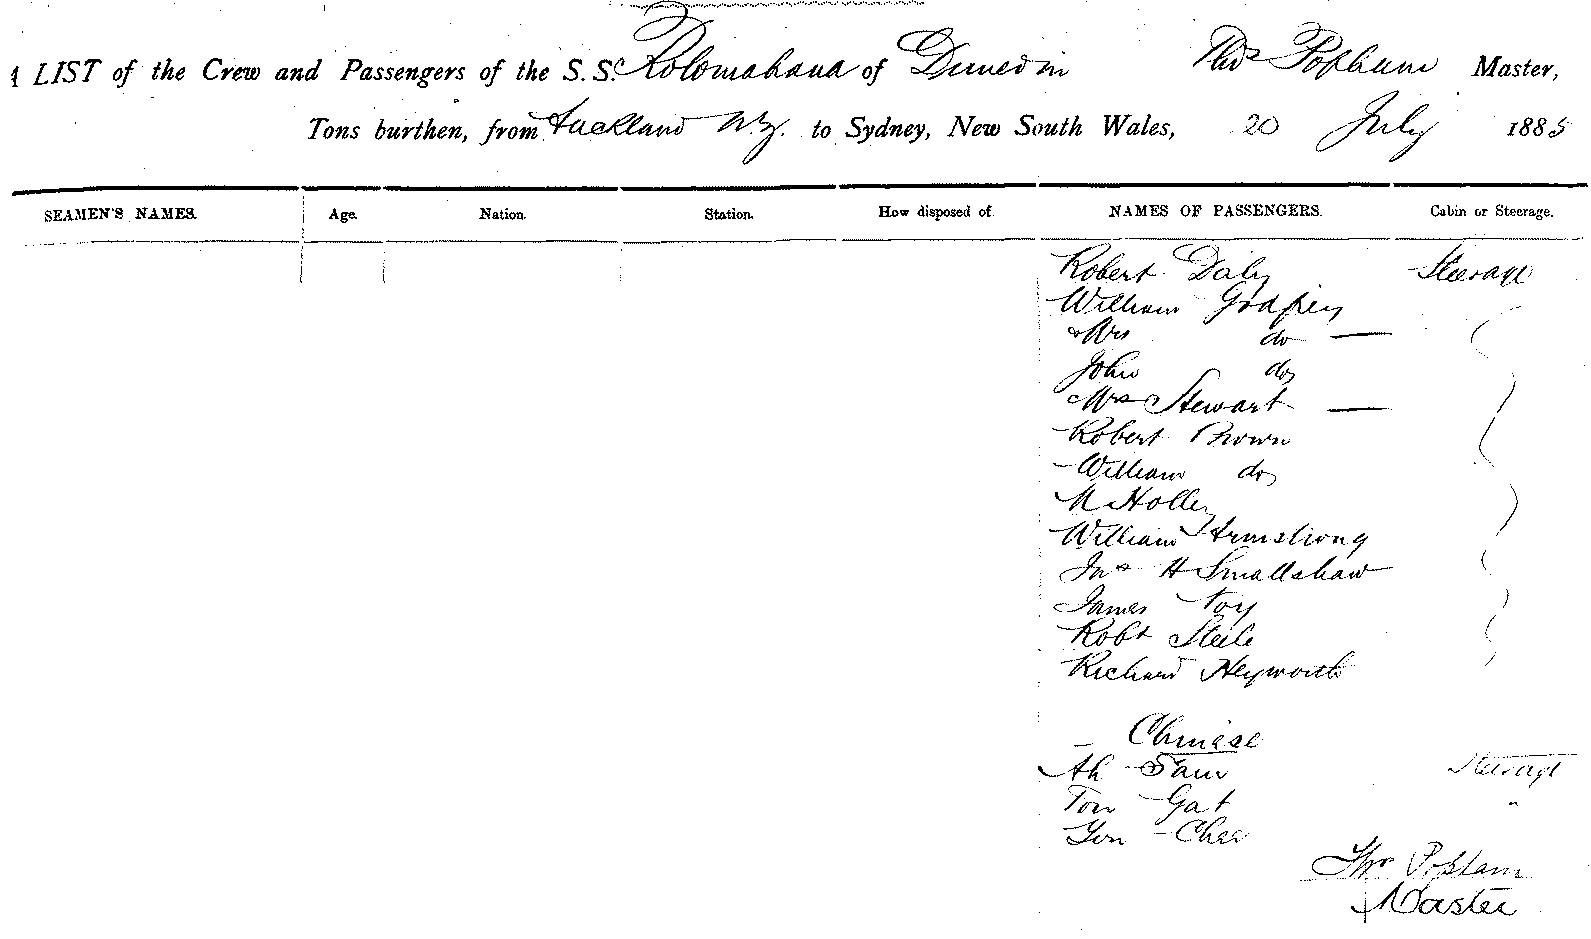 A LIST of the Crew and Passengers of the S.S. Rotomahana of Dunedin Thos Popham Master,
Tons burthen, from Auckland N.Z. to Sydney, New South Wales, 20 July 1885
SEAMEN'S NAMES. Age. Nation. Station. How disposed of NAMES OF PASSENGERS. Cabin or Steerage.
Robert Daly Steerage
William Godfrey
Mrs do —
John do
Mrs Stewart —
Robert Brown
William do
M Holley
William Armstrong
Jno H Smallshaw
James Foy
Robt Steele
Richard Heyworth
Chinese
Ah Sam Steerage
Tom Gat "
Yon Chee
Thos Popham
Master